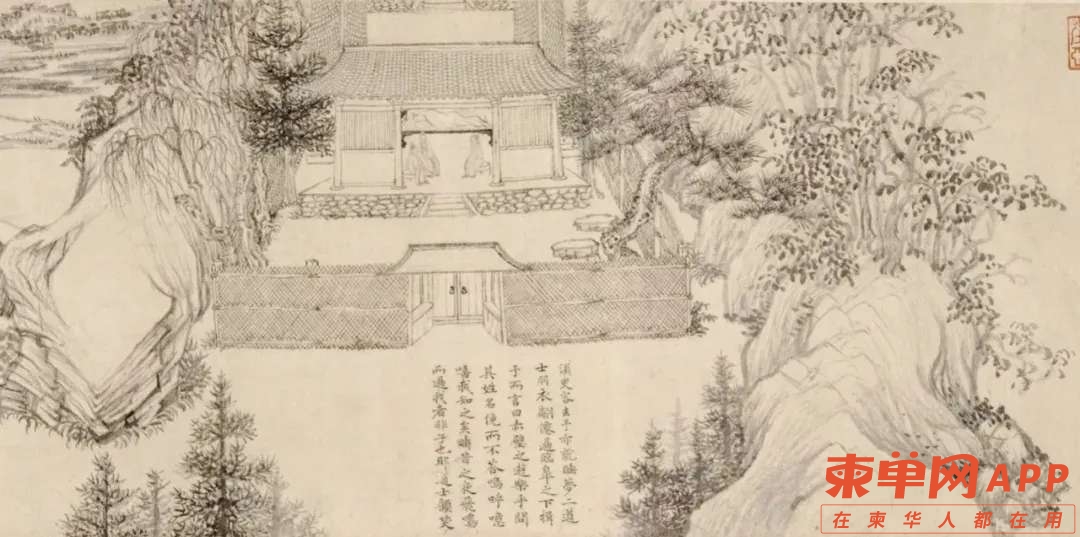 須臾客去予亦就睡夢二道
士羽衣翩僊過臨皋之下揖
予而言曰赤壁之遊樂乎問
其姓名俛而不答嗚呼噫
嘻我知之矣疇昔之夜飛鳴
而過我者非子也耶道士顧笑
柬单网APP
在柬华人都在用